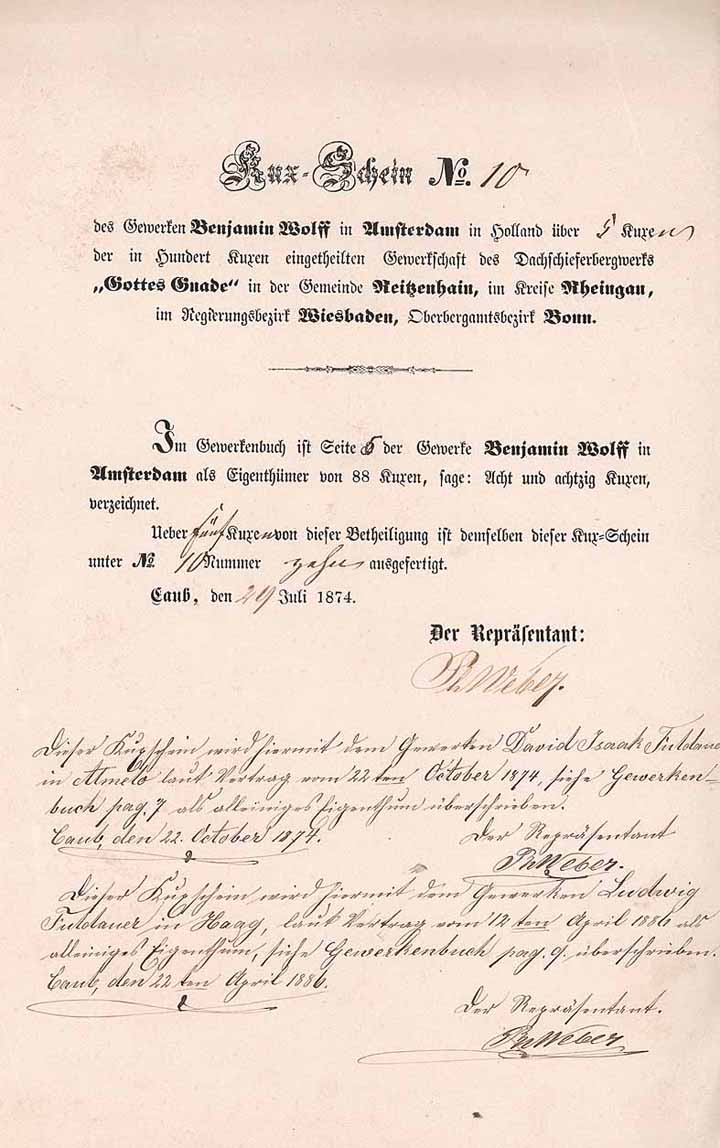 Kux-Schein No. 10
des Gewerken Benjamin Wolff in Amsterdam in Holland über 5 Kuxen
der in Hundert Kuxen eingetheilten Gewerkschaft des Dachschieferbergwerks
„Gottes Gnade“ in der Gemeinde Reitzenhain, im Kreise Rheingau,
im Regierungsbezirk Wiesbaden, Oberbergamtsbezirk Bonn.
Im Gewerkenbuch ist Seite 5 der Gewerke Benjamin Wolff in
Amsterdam als Eigenthümer von 88 Kuxen, sage: Acht und achtzig Kuxen,
verzeichnet.
Ueber fünf Kuxen von dieser Betheiligung ist demselben dieser Kux-Schein
unter No. 10 Nummer zehn ausgefertigt.
Caub, den 29 Juli 1874.
Der Repräsentant:
Ph Weber.
Dieser Kuxschein wird hiermit dem Gewerken David Isaak Fuldauer
in Almelo laut Vertrag vom 22 ten October 1874, siehe Gewerken-
buch pag. 7 als alleiniges Eigenthum überschrieben.
Caub, den 22. October 1874.
Der Repräsentant
Ph Weber.
Dieser Kuxschein wird hiermit dem Gewerken Ludwig
Fuldauer in Haag, laut Vertrag vom 12 ten April 1886 als
alleiniges Eigenthum, siehe Gewerkenbuch pag. 9. überschrieben.
Caub, den 22 ten April 1886.
Der Repräsentant.
Ph Weber